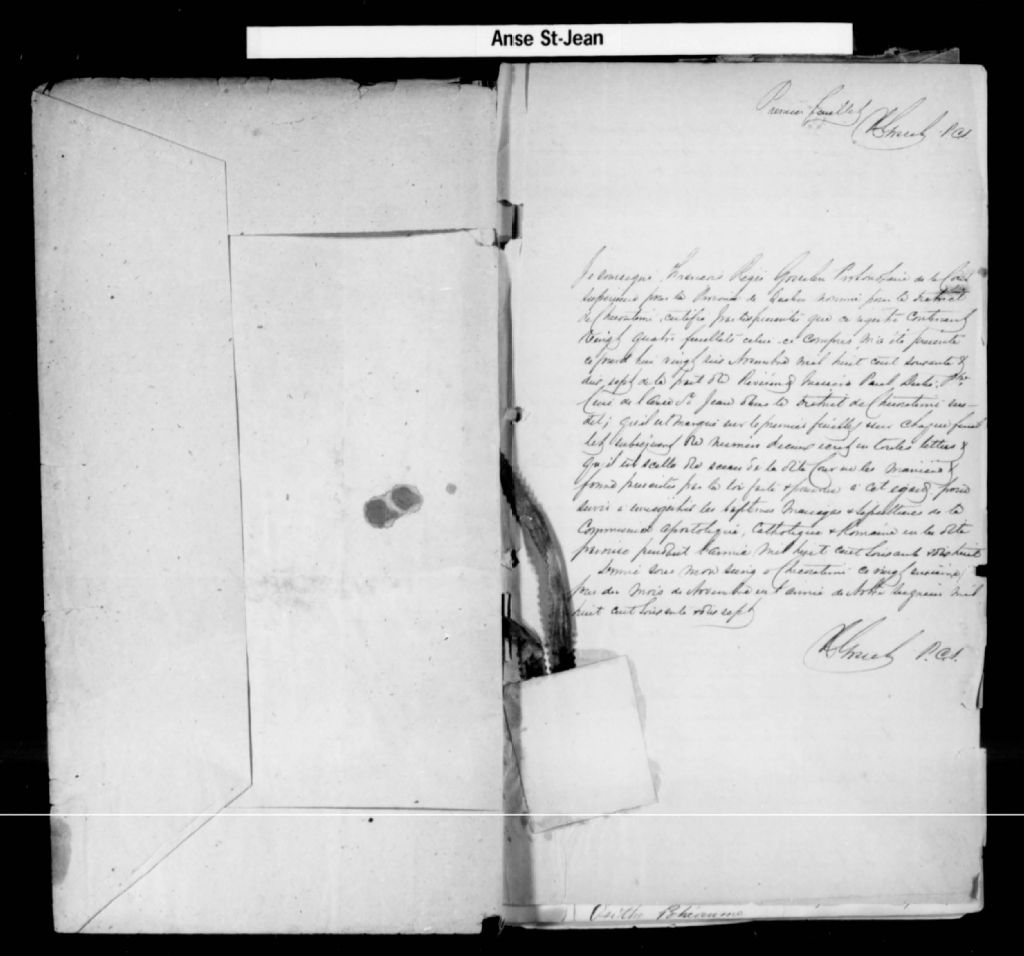 Anse St-Jean
Premier feuillet
P.C.S.
Je soussigné, François Régis Gosselin Protonotaire de la Cour
supérieure pour la Province de Québec nommé pour le District
de Chicoutimi, certifie par les présentes que ce registre contenant
Vingt quatre feuillets celui-ci compris m'a été présenté
ce jourd'hui vingt six Novembre mil huit cent soixante &
dix sept de la part de Révérend Messire Paul Dubé, Ptre
Curé de l'Anse St Jean dans le District de Chicoutimi sus-
dit; qu'il est marqué sur le premier feuillet & sur chaque feuil
let subséquent du numéro d'iceux écrit en toutes lettres &
qu'il est scellé du sceau de la dite Cour en les manière &
forme prescrites par la loi faite & pourvue à cet égard, pour
servir à enregistrer les baptêmes Mariages & Sépultures de la
Communion apostolique, Catholique & Romaine en la dite
paroisse pendant l'année mil huit cent soixante & dix huit
Donné sous mon seing à Chicoutimi ce vingt sixième
jour du mois de Novembre en l'année de Notre Seigneur mil
huit cent soixante & dix sept
P.C.S.